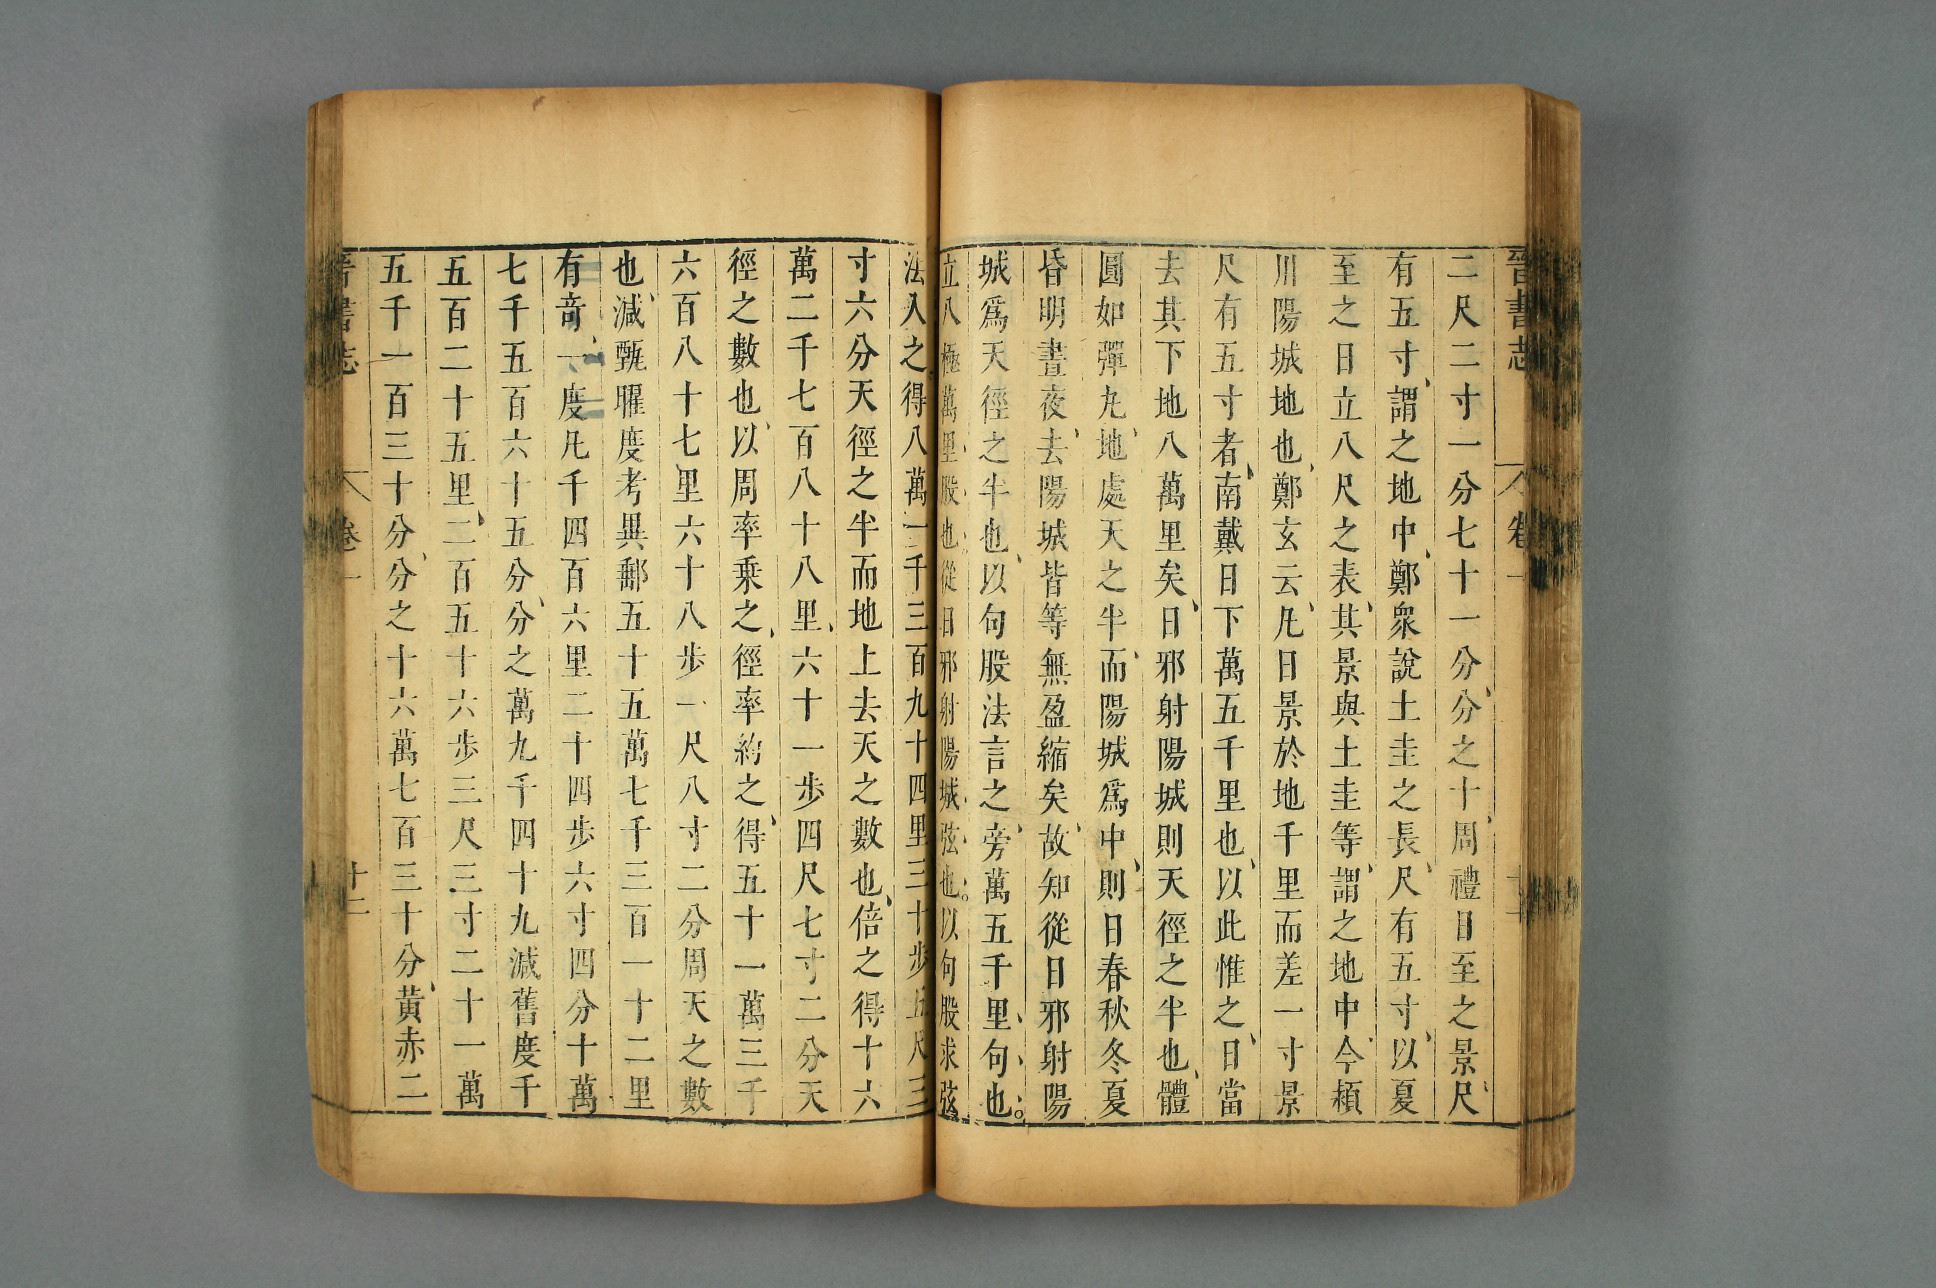 晉書志 卷一
二尺二寸一分七十一分分之十周禮日至之景尺
有五寸謂之地中鄭衆說土圭之長尺有五寸以夏
至之日立八尺之表其景與土圭等謂之地中今潁
川陽城地也鄭玄云凡日景於地千里而差一寸景
尺有五寸者南戴日下萬五千里也以此惟之日當
去其下地八萬里矣日邪射陽城則天徑之半也體
圓如彈丸地處天之半而陽城爲中則日春秋冬夏
昏明晝夜去陽城皆等無盈縮矣故知從日邪射陽
城爲天徑之半也以句股法言之旁萬五千里句也
立八極萬里股也從日邪射陽城弦也以句股求弦
法入之得八萬一千三百九十四里三十步五尺三
寸六分天徑之半而地上去天之數也倍之得十六
萬二千七百八十八里六十一步四尺七寸二分天
徑之數也以周率乗之徑率約之得五十一萬三千
六百八十七里六十八步一尺八寸二分周天之數
也減甄曜度考異郵五十五萬七千三百一十二里
有奇一度凡千四百六里二十四步六寸四分十萬
七千五百六十五分分之萬九千四十九減舊度千
五百二十五里二百五十六步三尺三寸二十一萬
五千一百三十分分之十六萬七百三十分黃赤二
晉書志 卷一 十二